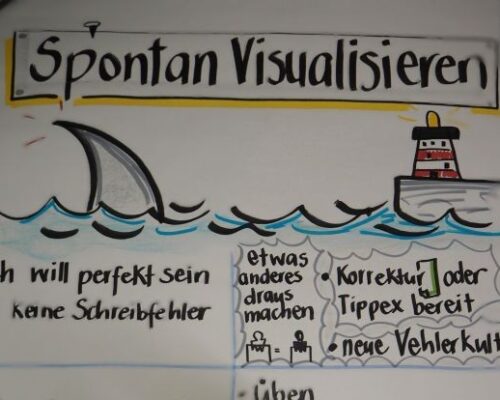 Spontan Visualisieren
h will perfekt sein
keine Schreibfehler
etwas
anderes
draus
machen
=
• Korrektur oder
Tippex bereit
• neue Vehlerkult
- üben